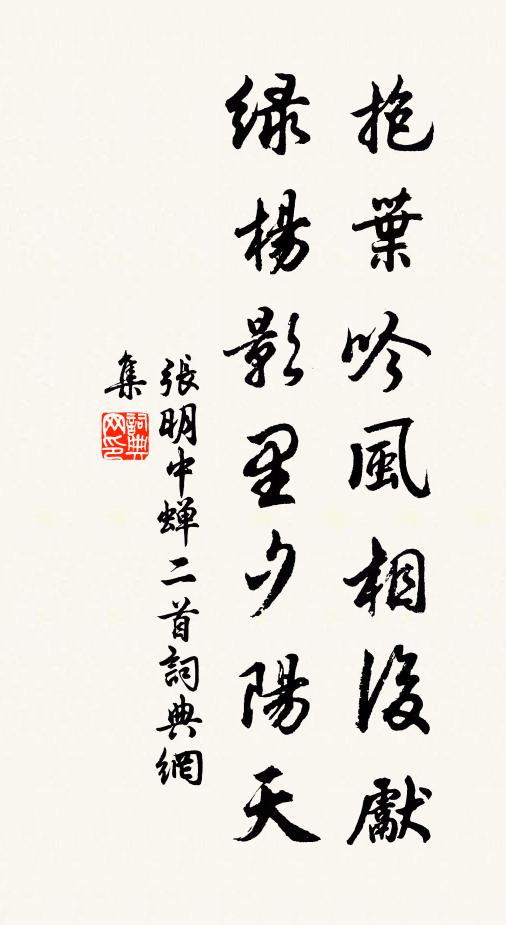 抱葉吟風相後獻
綠楊影里夕陽天
張明中蝉二首詞典網
集
詞典网印